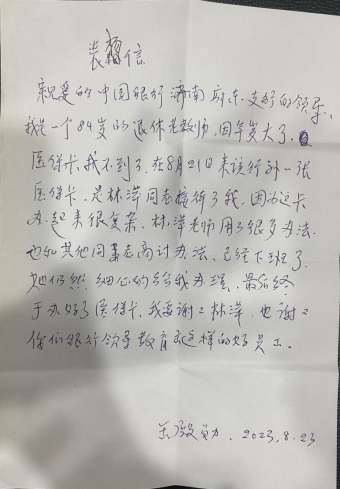 表扬信
亲爱的中国银行济南府东支行的领导：
我是一个84岁的退休老教师，因年岁大了，
医保卡找不到了，在8月21日来该行办一张
医保卡，是林萍同志接待了我，因为这卡
办起来很复杂，林萍老师用了很多办法
也和其他同事老商讨办法，已经下班了，
她仍然细心的给我办理，最后终
于办好了医保卡，我要谢谢林萍，也谢谢
你们银行领导教育出这样的好员工。
2023.8.23